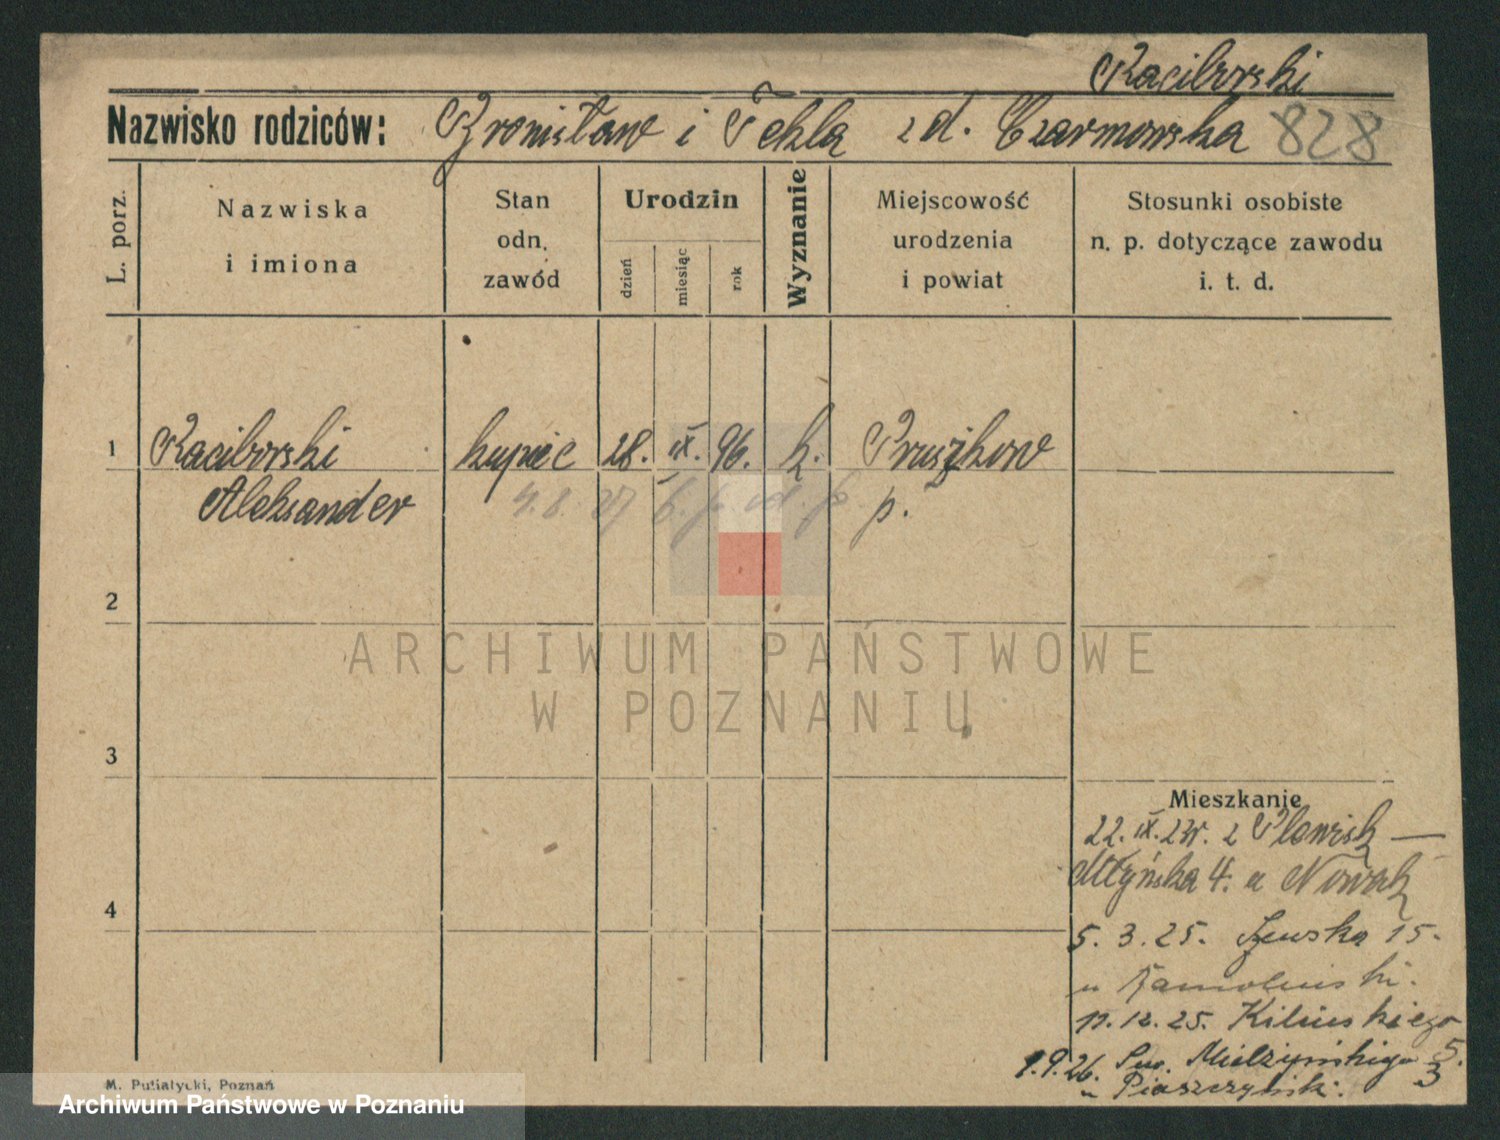 Raciborski
Nazwisko rodziców: Bronisław i Tekla z d. Czarnowska 828
L. porz.
Nazwiska
i imiona
Stan
odn.
zawód
Urodzin
dzień
miesiąc
rok
Wyznanie
Miejscowość
urodzenia
i powiat
Stosunki osobiste
n. p. dotyczące zawodu
i. t. d.
1 Raciborski kupiec 28. IX. 96. k. Pruszków
Aleksander 4.8.27 p.
2
ARCHIWUM PAŃSTWOWE
W POZNANIU
3
Mieszkanie
22. IX. z
Młyńska 4. u Nowak
4
5. 3. 25. 15.
u
11. 12. 25. Kilińskiego 5.
1.9.26. Sew. Mielżyńskiego 3
u Piaszczyński.
M. Putiatycki, Poznań
Archiwum Państwowe w Poznaniu